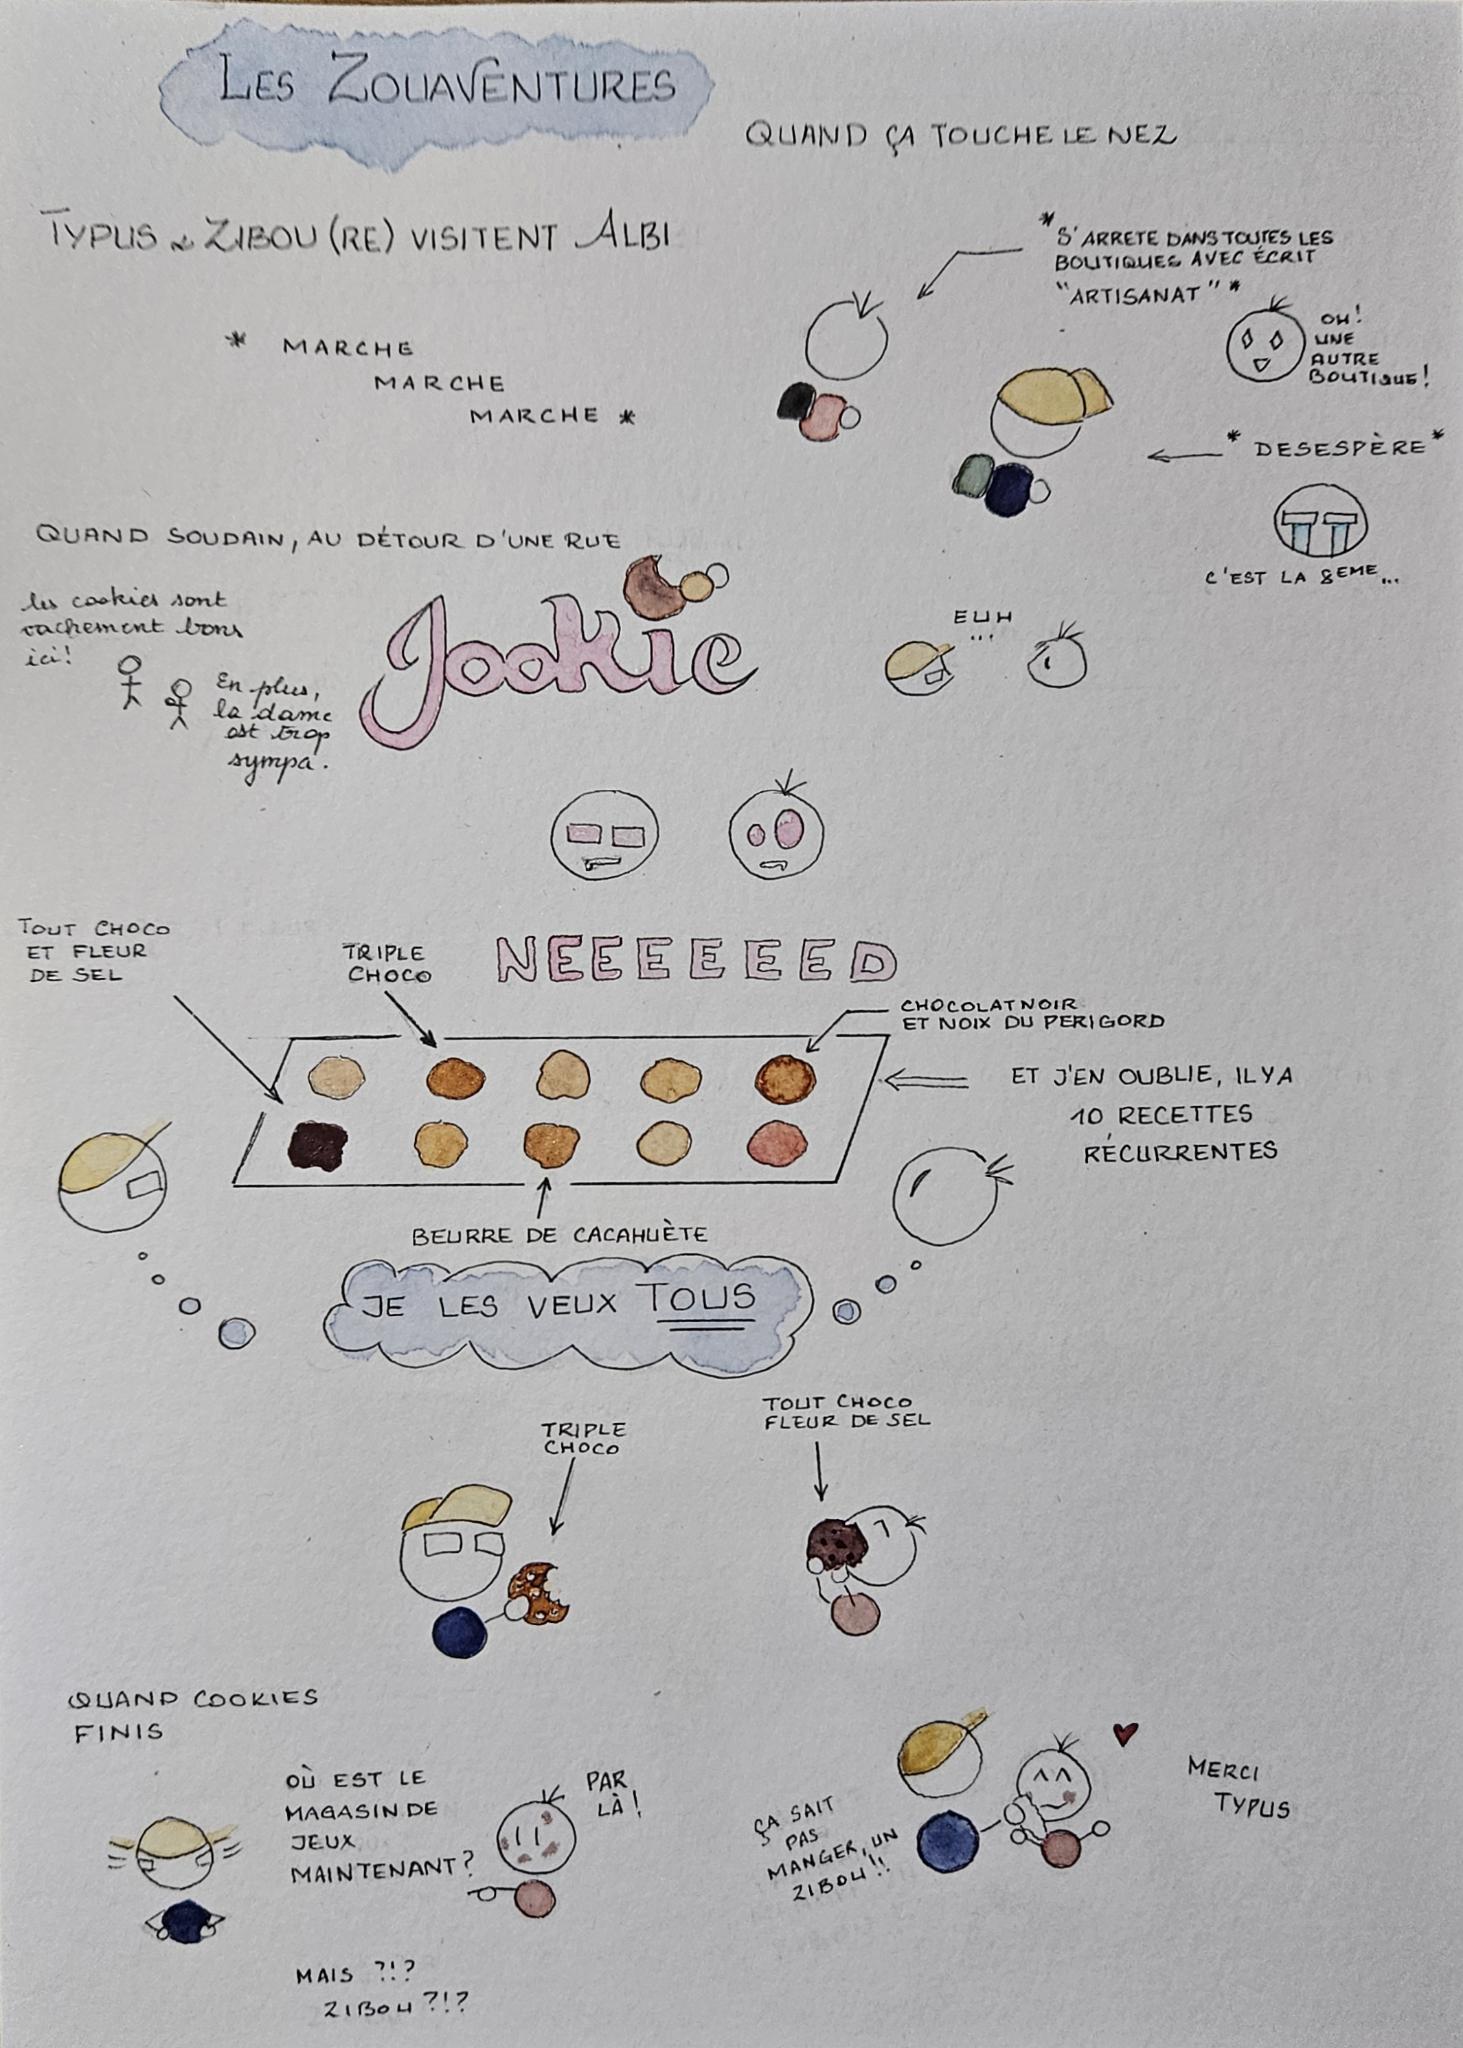 LES ZOUAVENTURES
QUAND ÇA TOUCHE LE NEZ
TYPUS & ZIBOU (RE) VISITENT ALBI
* MARCHE
MARCHE
MARCHE *
*S'ARRETE DANS TOUTES LES
BOUTIQUES AVEC ÉCRIT
"ARTISANAT" *
OH!
UNE
AUTRE
BOUTIQUE!
* DESESPÈRE *
C'EST LA 8EME...
QUAND SOUDAIN, AU DÉTOUR D'UNE RUE
les cookies sont
vachement bons
ici!
En plus,
la dame
est trop
sympa.
Jookie
EUH
...
NEEEEEED
TOUT CHOCO
ET FLEUR
DE SEL
TRIPLE
CHOCO
CHOCOLAT NOIR
ET NOIX DU PERIGORD
ET J'EN OUBLIE, IL Y A
10 RECETTES
RÉCURRENTES
BEURRE DE CACAHUÈTE
JE LES VEUX TOUS
TRIPLE
CHOCO
TOUT CHOCO
FLEUR DE SEL
QUAND COOKIES
FINIS
OÙ EST LE
MAGASIN DE
JEUX
MAINTENANT?
PAR
LÀ!
MAIS ?!?
ZIBOU ?!?
ÇA SAIT
PAS
MANGER, UN
ZIBOU!!
MERCI
TYPUS